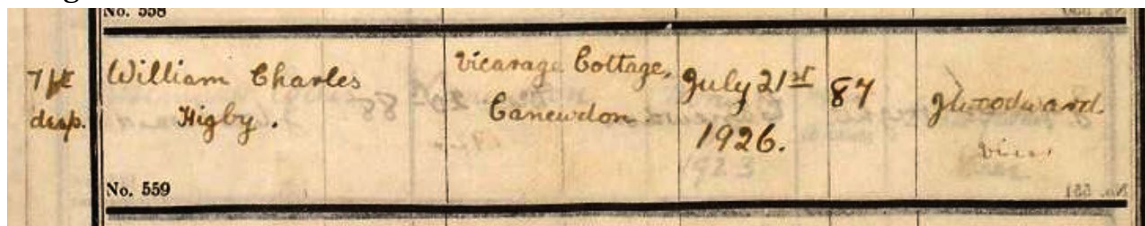 No. 558
7 ft deep.
William Charles
Higby.
Vicarage Cottage,
Canewdon.
July 21st
1926.
87
JWoodward.
Vicar
No. 559